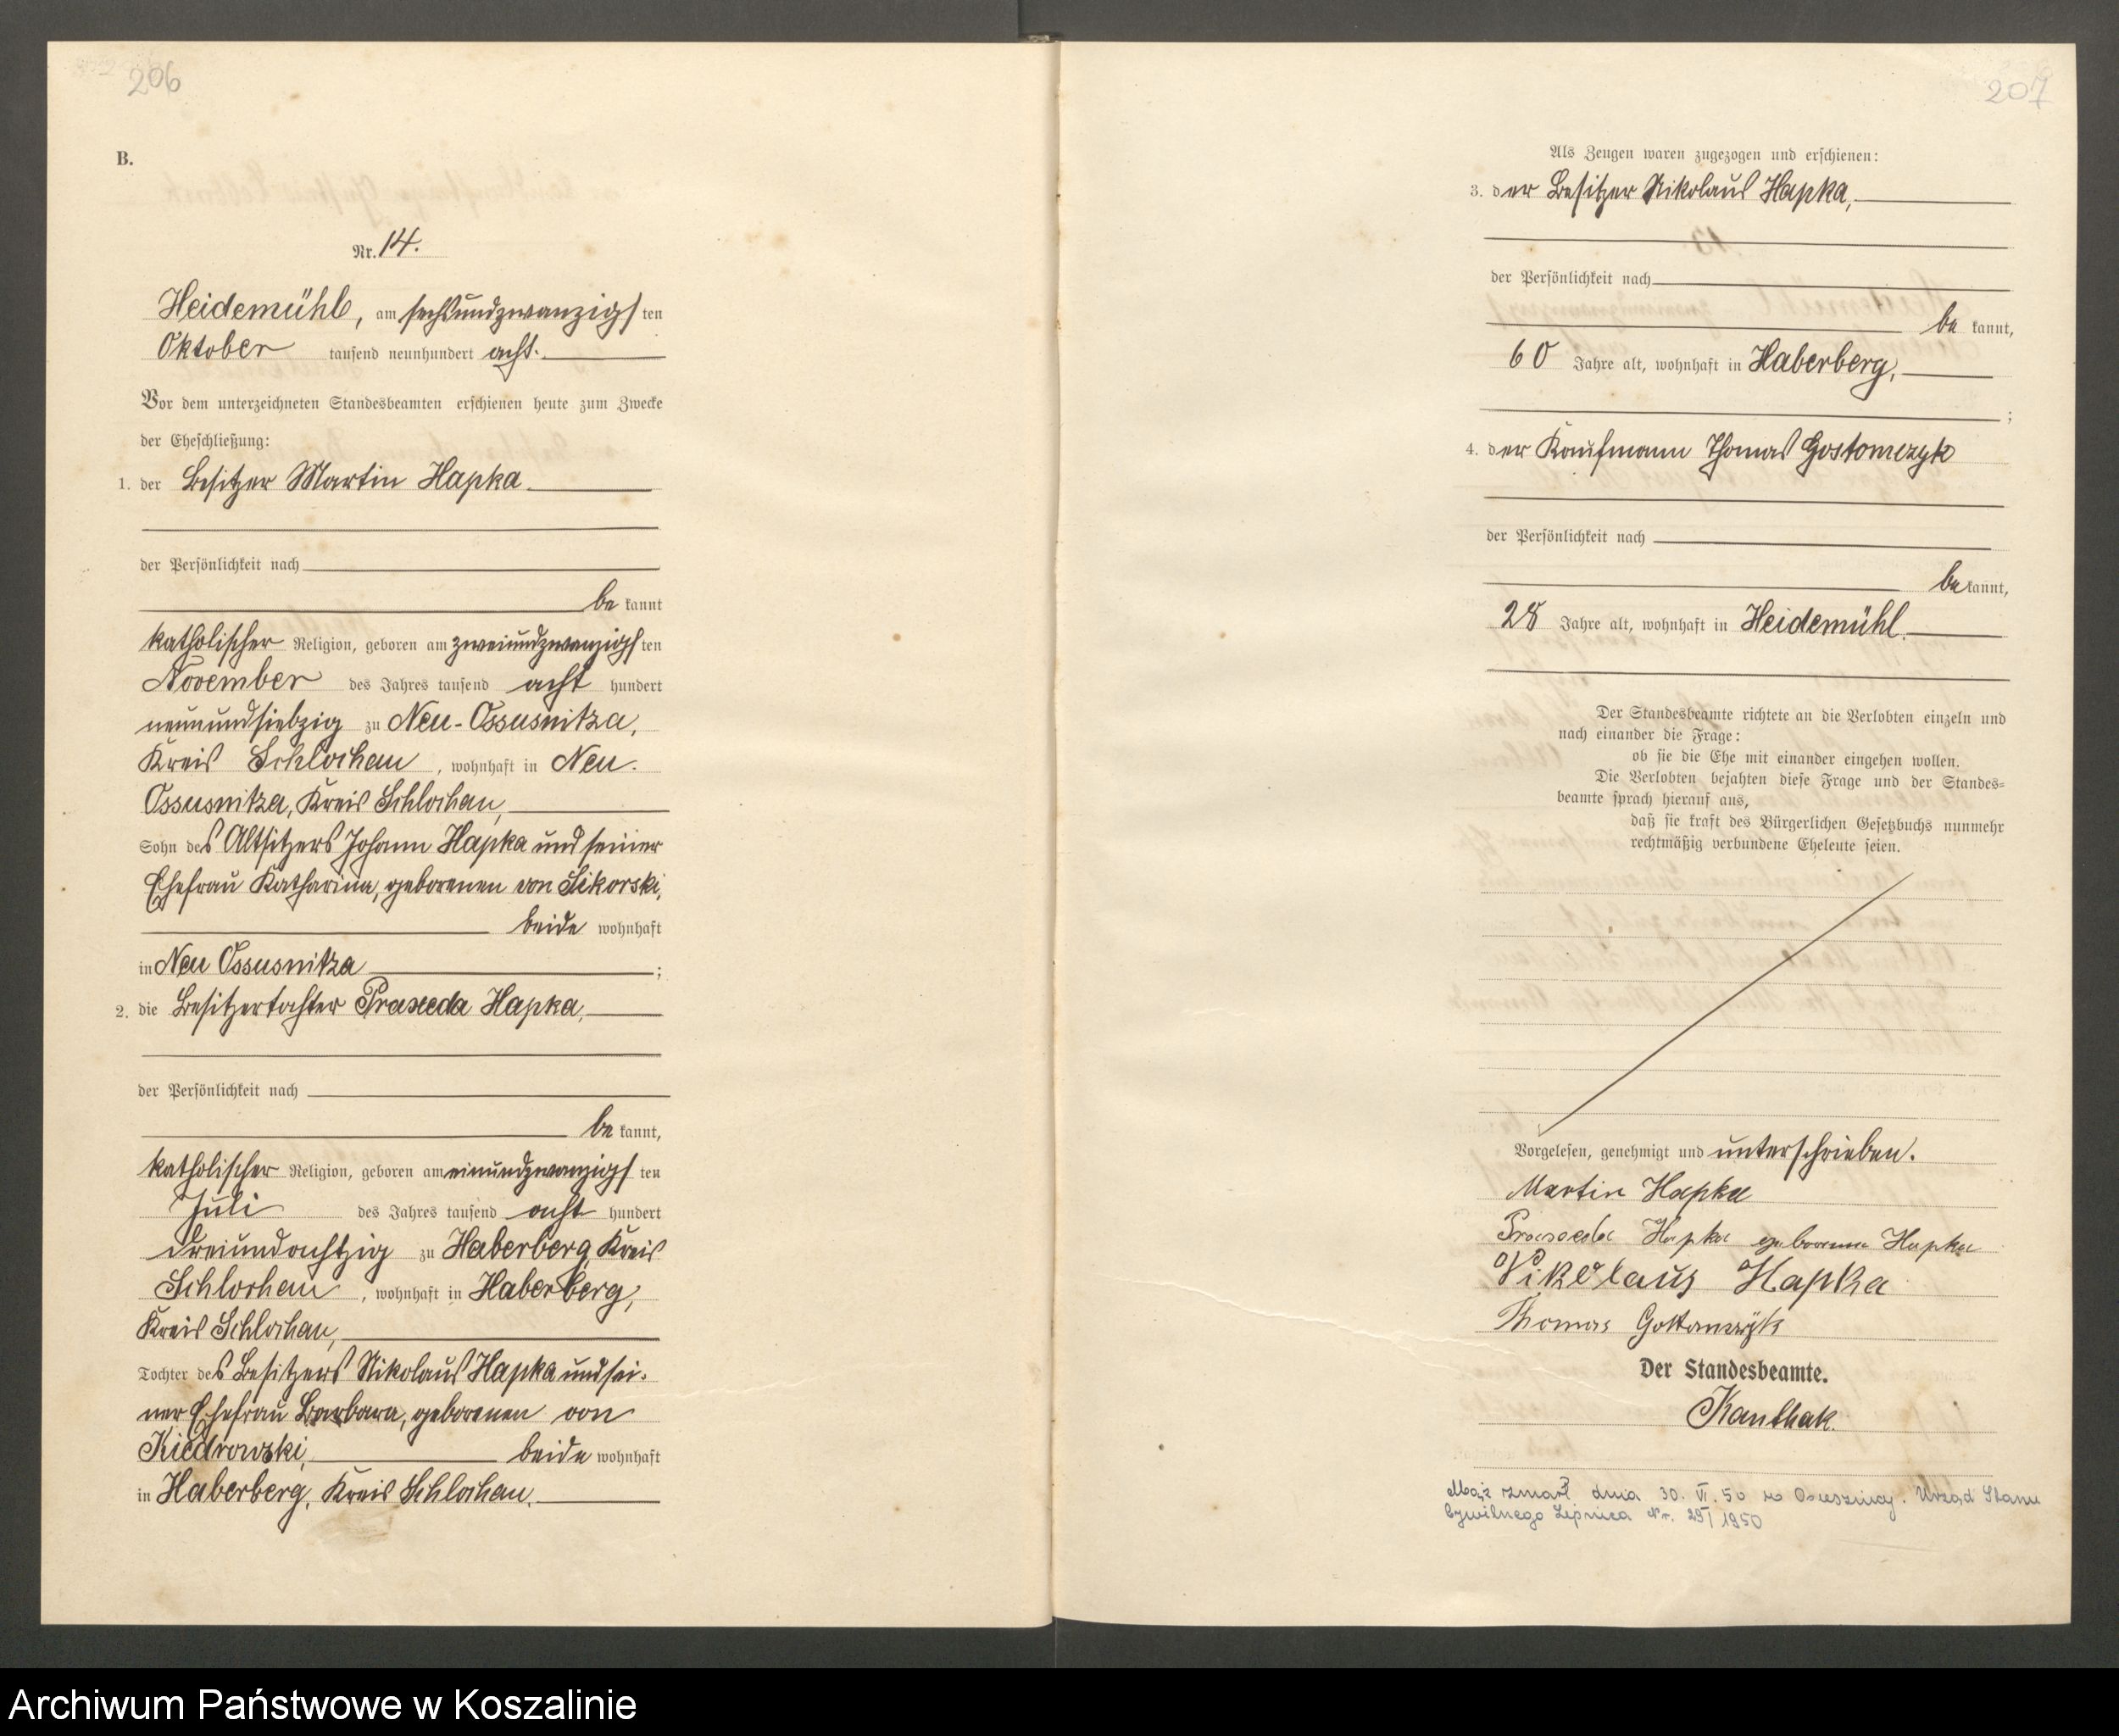 206
B.
Nr. 14.
Heidemühl, am sechsundzwanzigsten
Oktober tausend neunhundert acht.
Vor dem unterzeichneten Standesbeamten erschienen heute zum Zwecke
der Eheschließung:
1. der Besitzer Martin Hapka
der Persönlichkeit nach
be kannt
katholischer Religion, geboren am zweiundzwanzigsten
November des Jahres tausend acht hundert
neunundsiebzig zu Neu-Ossusnitza,
Kreis Schlochau, wohnhaft in Neu-
Ossusnitza, Kreis Schlochau,
Sohn des Altsitzers Johann Hapka und seiner
Ehefrau Katharina, geborenen von Sikorski,
beide wohnhaft
in Neu Ossusnitza ;
2. die Besitzertochter Praxeda Hapka,
der Persönlichkeit nach
be kannt,
katholischer Religion, geboren am einundzwanzigsten
Juli des Jahres tausend acht hundert
dreiundachtzig zu Haberberg, Kreis
Schlochau, wohnhaft in Haberberg,
Kreis Schlochau,
Tochter des Besitzers Nikolaus Hapka und sei-
ner Ehefrau Barbara, geborenen von
Kiedrowski, beide wohnhaft
in Haberberg, Kreis Schlochau.
207
Als Zeugen waren zugezogen und erschienen:
3. der Besitzer Nikolaus Hapka,
der Persönlichkeit nach
be kannt,
60 Jahre alt, wohnhaft in Haberberg,
;
4. der Kaufmann Thomas Gostomczyk
der Persönlichkeit nach
be kannt,
28 Jahre alt, wohnhaft in Heidemühl.
Der Standesbeamte richtete an die Verlobten einzeln und
nach einander die Frage:
ob sie die Ehe mit einander eingehen wollen.
Die Verlobten bejahten diese Frage und der Standes-
beamte sprach hierauf aus,
daß sie kraft des Bürgerlichen Gesetzbuchs nunmehr
rechtmäßig verbundene Eheleute seien.
Vorgelesen, genehmigt und unterschrieben.
Martin Hapka
Praxeda Hapka geborene Hapka
Nikolaus Hapka
Thomas Gostomczyk
Der Standesbeamte.
Kanthak.
Mąż zmarł dnia 30. VI. 50 w Osusznicy. Urząd Stanu
Cywilnego Lipnica Nr. 29/1950
Archiwum Państwowe w Koszalinie